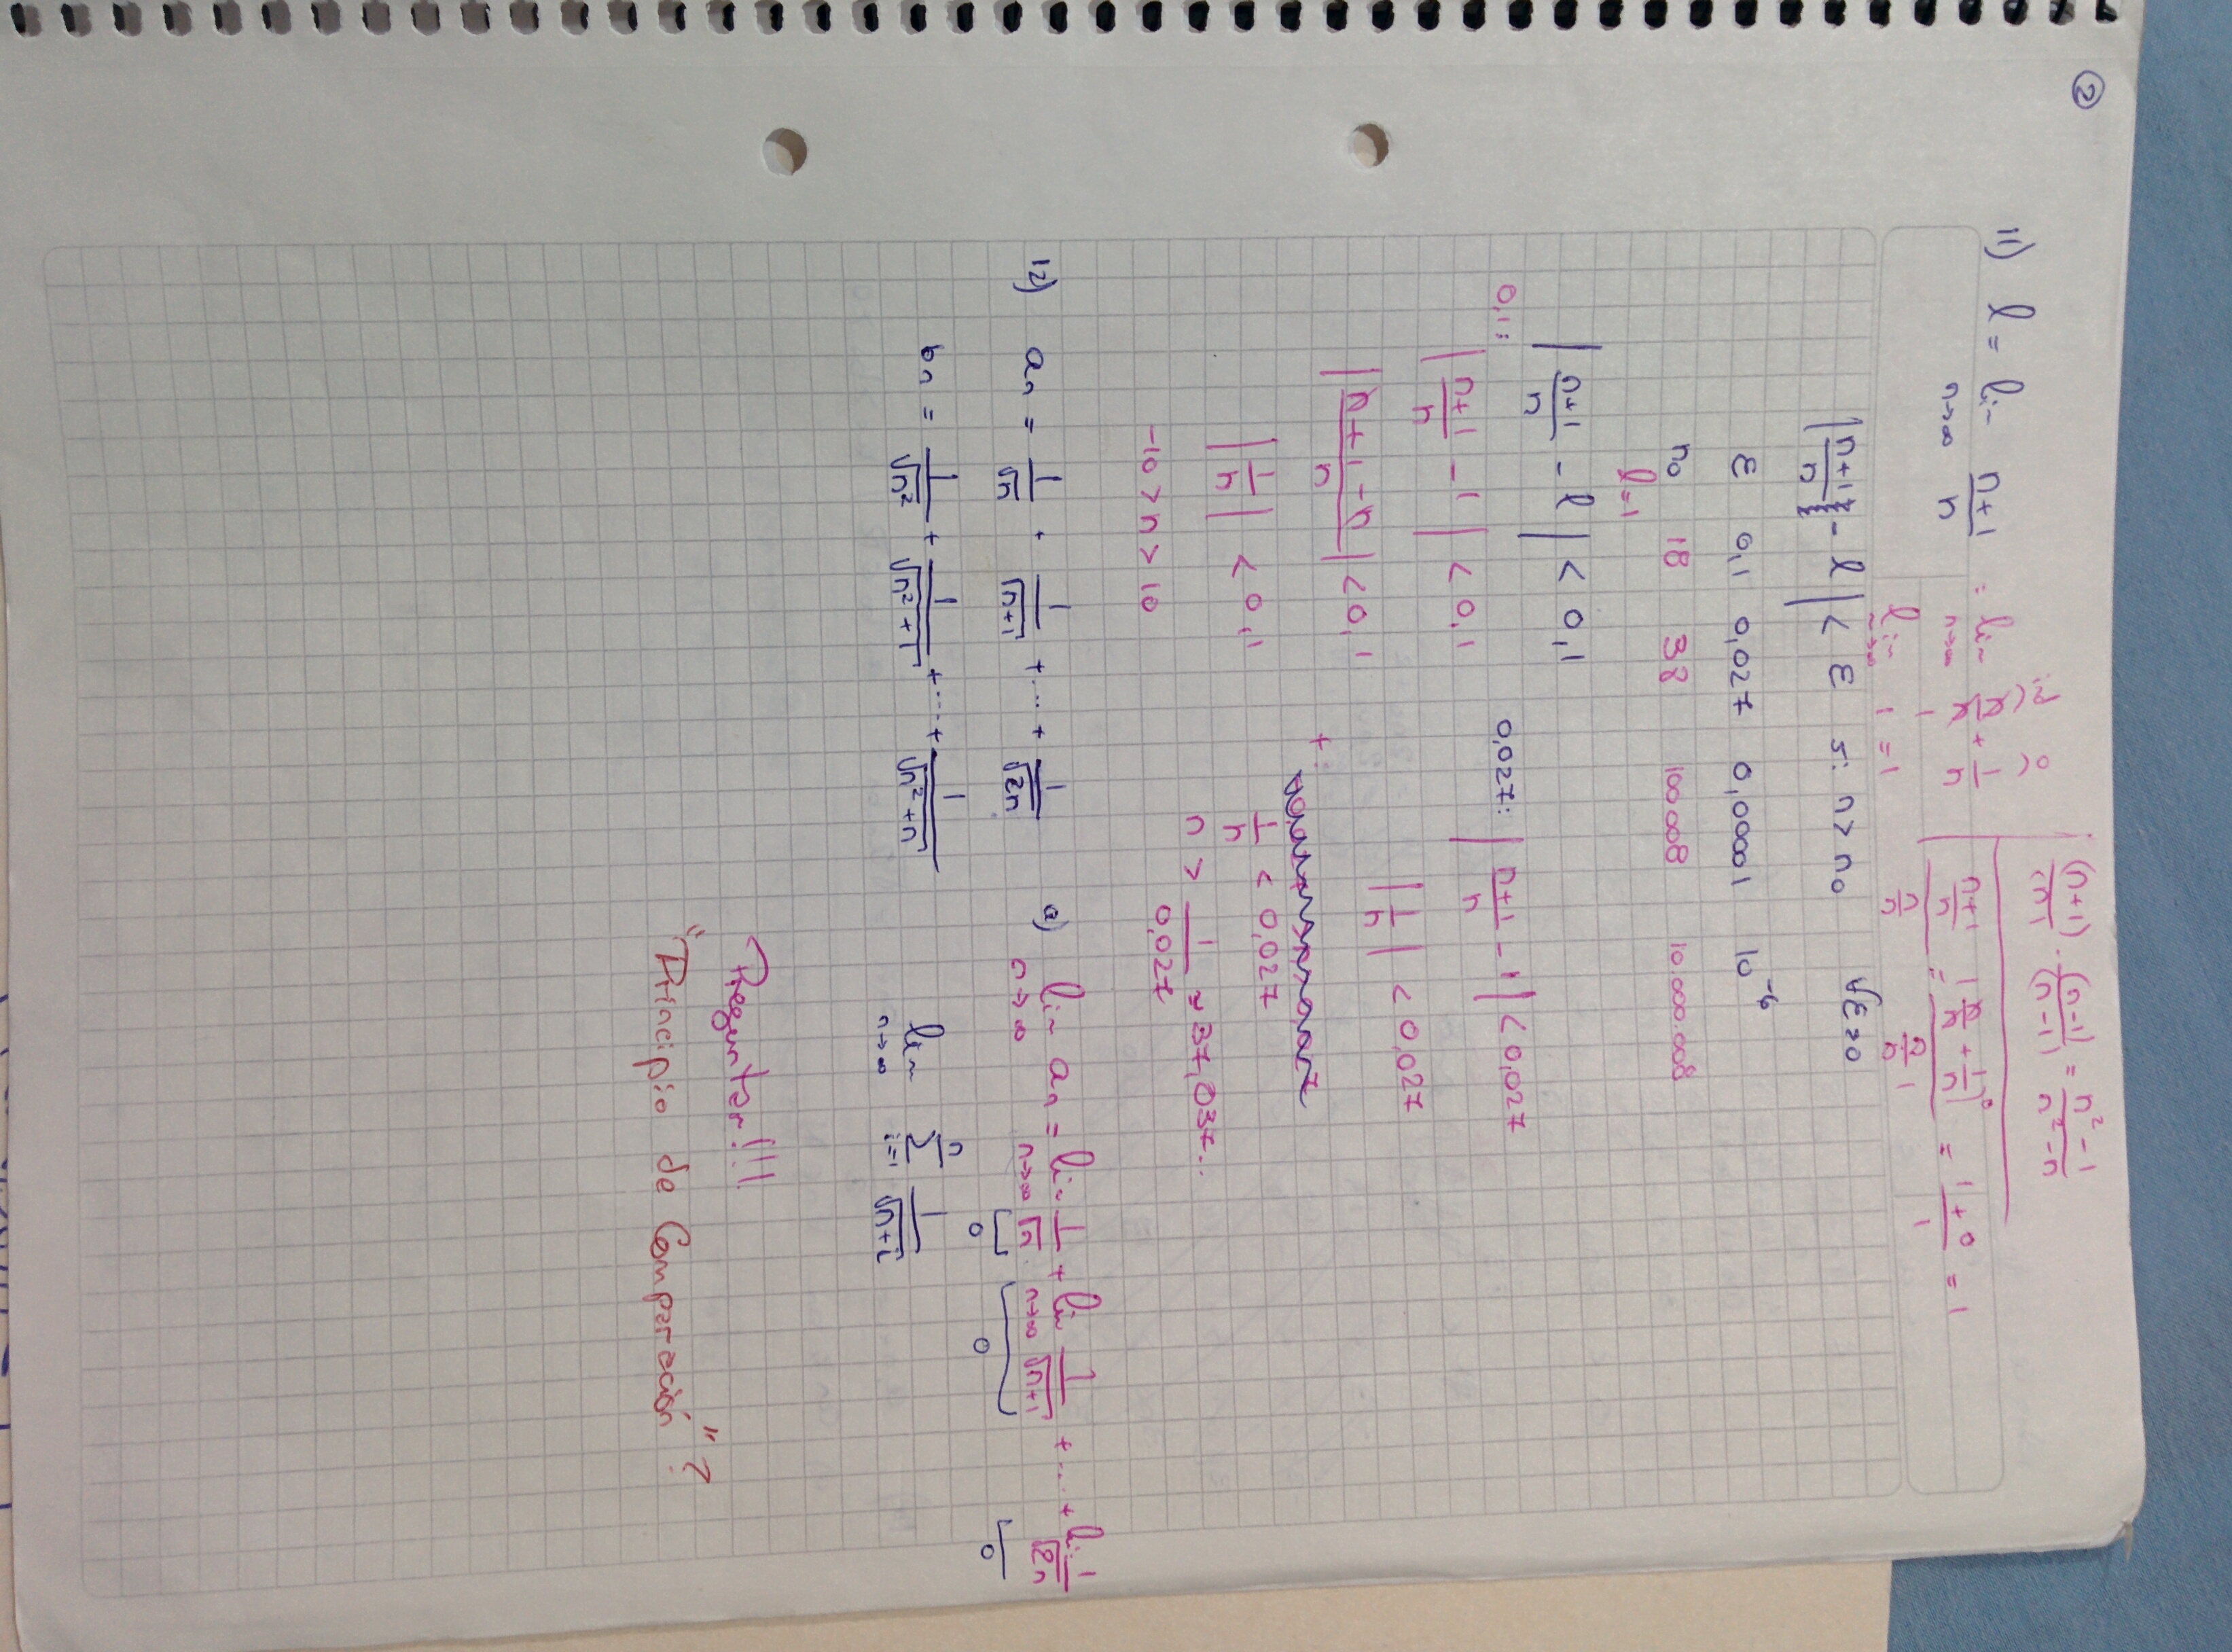 ②
11) l = lim n→∞ (n+1)/n = lim n→∞ n/n + 1/n
lim n→∞ 1 = 1
(n+1)/(n) · (n-1)/(n-1) = (n² - 1)/(n² - n)
((n+1)/n)/(n/n) = (n/n + 1/n)/(n/n) = (1 + 0)/1 = 1
|(n+1)/n - l| < ε si n > n₀ ∀ε>0
ε 0,1 0,027 0,00001 10⁻⁶
n₀ 18 38 100008 10.000.008
l=1
|(n+1)/n - l| < 0,1
0,1:
|(n+1)/n - 1| < 0,1
|(n+1-n)/n| < 0,1
|1/n| < 0,1
-10 > n > 10
0,027: |(n+1)/n - 1| < 0,027
|1/n| < 0,027
1/n < 0,027
n > 1/0,027 ≈ 37,037..
12) aₙ = 1/√n + 1/√(n+1) + ... + 1/√(2n)
bₙ = 1/√(n²) + 1/√(n²+1) + ... + 1/√(n²+n)
a) lim n→∞ aₙ = lim n→∞ 1/√n + lim n→∞ 1/√(n+1) + ... + lim 1/√(2n)
0 0 0
lim n→∞ Σ i=1 n 1/√(n+i)
Preguntar!!!
"Principio de Comparación"?